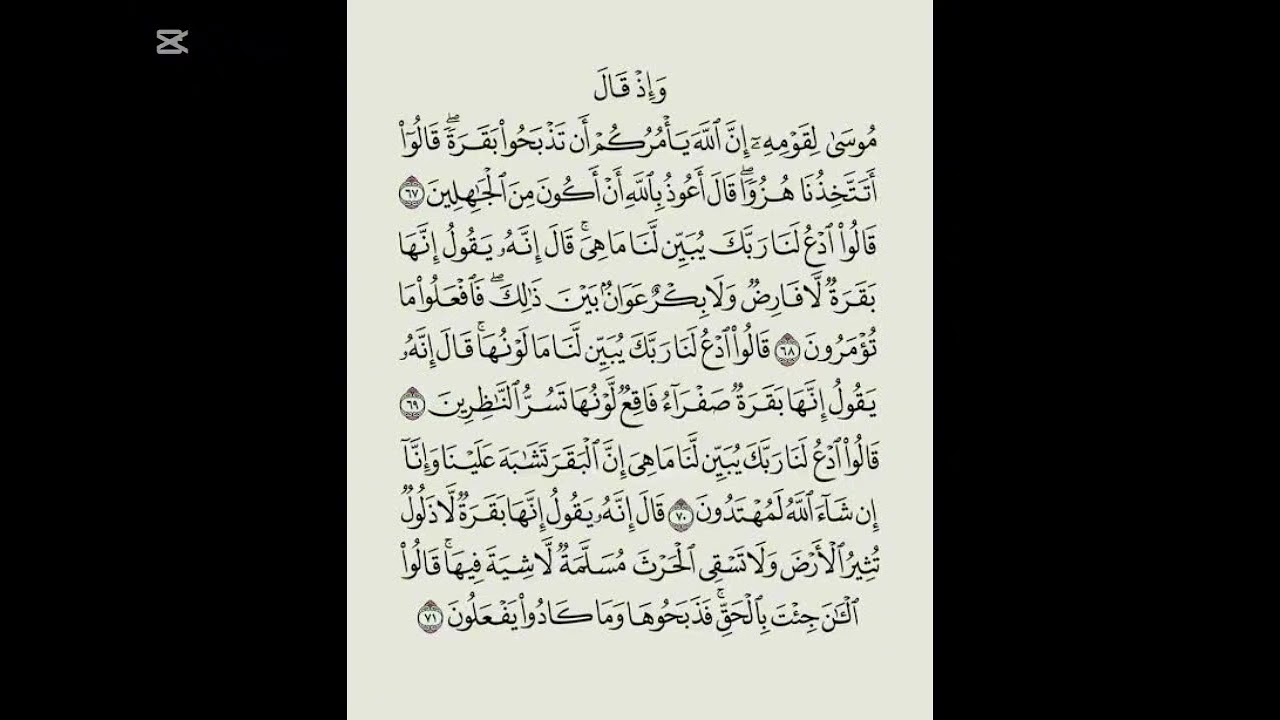 وَإِذْ قَالَ
مُوسَىٰ لِقَوْمِهِۦٓ إِنَّ ٱللَّهَ يَأْمُرُكُمْ أَن تَذْبَحُوا۟ بَقَرَةًۖ قَالُوٓا۟
أَتَتَّخِذُنَا هُزُوًاۖ قَالَ أَعُوذُ بِٱللَّهِ أَنْ أَكُونَ مِنَ ٱلْجَٰهِلِينَ ٦٧
قَالُوا۟ ٱدْعُ لَنَا رَبَّكَ يُبَيِّن لَّنَا مَا هِىَۚ قَالَ إِنَّهُۥ يَقُولُ إِنَّهَا
بَقَرَةٌ لَّا فَارِضٌ وَلَا بِكْرٌ عَوَانٌۢ بَيْنَ ذَٰلِكَۖ فَٱفْعَلُوا۟ مَا
تُؤْمَرُونَ ٦٨ قَالُوا۟ ٱدْعُ لَنَا رَبَّكَ يُبَيِّن لَّنَا مَا لَوْنُهَاۚ قَالَ إِنَّهُۥ
يَقُولُ إِنَّهَا بَقَرَةٌ صَفْرَآءُ فَاقِعٌ لَّوْنُهَا تَسُرُّ ٱلنَّٰظِرِينَ ٦٩
قَالُوا۟ ٱدْعُ لَنَا رَبَّكَ يُبَيِّن لَّنَا مَا هِىَ إِنَّ ٱلْبَقَرَ تَشَٰبَهَ عَلَيْنَا وَإِنَّآ
إِن شَآءَ ٱللَّهُ لَمُهْتَدُونَ ٧٠ قَالَ إِنَّهُۥ يَقُولُ إِنَّهَا بَقَرَةٌ لَّا ذَلُولٌ
تُثِيرُ ٱلْأَرْضَ وَلَا تَسْقِى ٱلْحَرْثَ مُسَلَّمَةٌ لَّا شِيَةَ فِيهَاۚ قَالُوا۟
ٱلْـَٰٔنَ جِئْتَ بِٱلْحَقِّۚ فَذَبَحُوهَا وَمَا كَادُوا۟ يَفْعَلُونَ ٧١